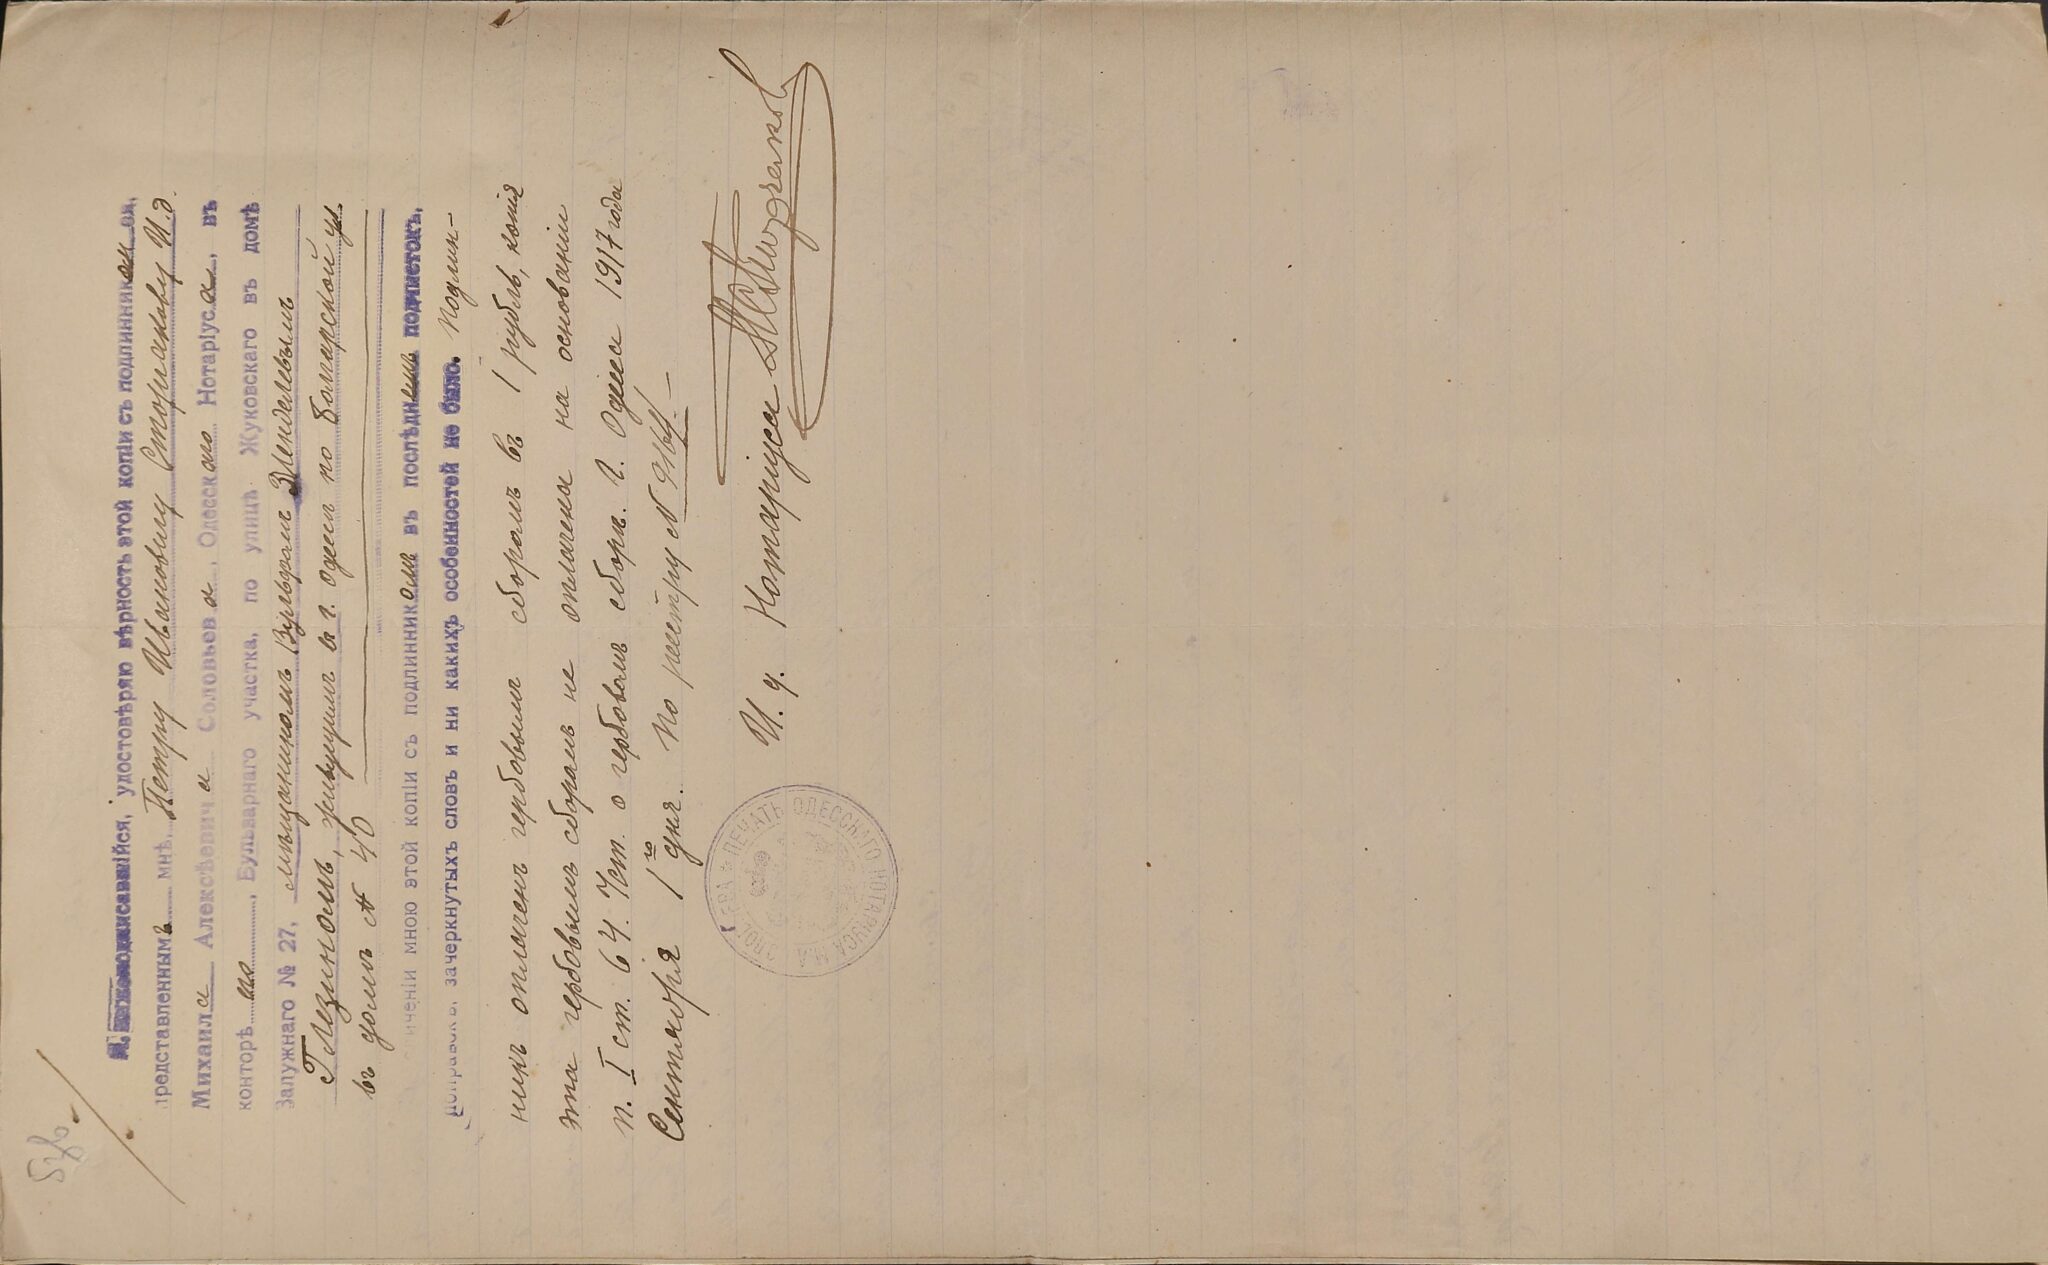 Я, нижеподписавшійся, удостовѣряю вѣрность этой копіи съ подлинникомъ ея,
представленнымъ мнѣ, Петру Ивановичу И. д.
Михаила Алексѣевича Соловьева, Одесскаго Нотаріуса, въ
конторѣ его, Бульварнаго участка, по улицѣ Жуковскаго въ домѣ
Запужнаго № 27, мѣщаниномъ
живущимъ въ г. Одессѣ по Болгарской ул.
въ домѣ № 40
При сличеніи мною этой копіи съ подлинникомъ въ послѣднемъ подчистокъ,
поправокъ, зачеркнутыхъ словъ и ни какихъ особенностей не было. Подлин-
никъ оплаченъ гербовымъ сборомъ въ 1 рубль, копія
эта гербовымъ сборомъ не оплачена на основаніи
п. I ст. 64. Уст. о гербовомъ сборѣ. Г. Одесса 1917 года
Сентября 1го дня. По реестру №
И. д. Нотаріуса
ПЕЧАТЬ ОДЕССКАГО НОТАРІУСА М.А. СОЛОВЬЕВА